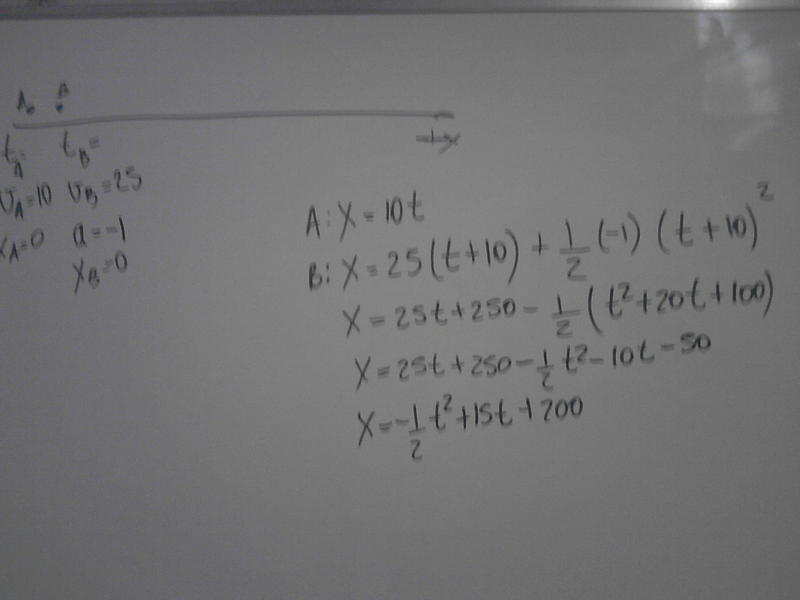 A B
+x
t_A= t_B=
v_A=10 v_B=25
x_A=0 a=-1
x_B=0
A: x = 10t
B: x = 25(t+10) + 1/2 (-1) (t+10)²
x = 25t+250 - 1/2 (t²+20t+100)
x = 25t+250 - 1/2 t² - 10t - 50
x = -1/2 t² + 15t + 200